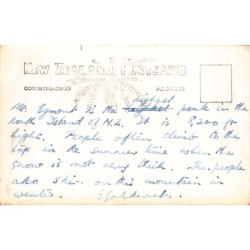 NEW ZEALAND POSTCARD
CORRESPONDENCE ADDRESS
highest
Mt. Egmont is the peak in the
north Island of N.Z. It is 8,200 ft
high. People often climb to the
top in the summer time when the
snow is not very thick. The people
also ski- on this mountain in
winter.